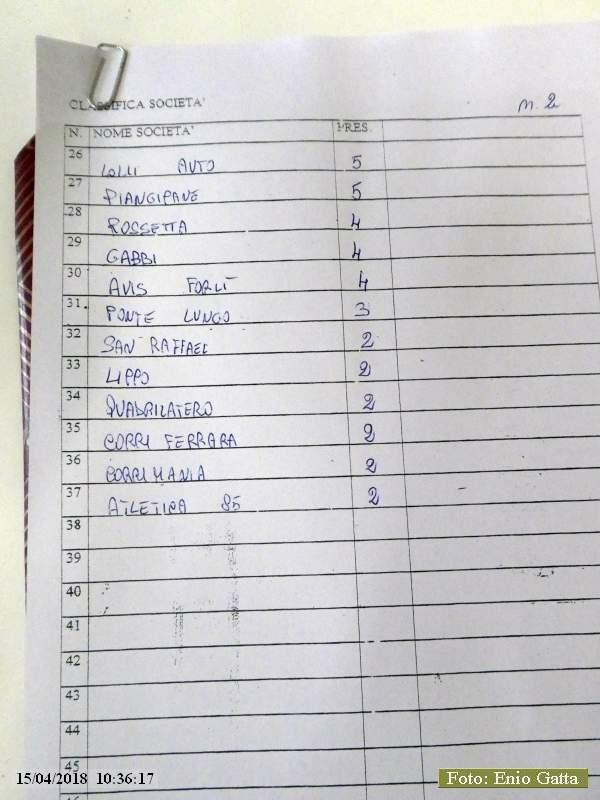 CLASSIFICA SOCIETA' n. 2
N. NOME SOCIETA' PRES.
26 LOLLI AUTO 5
27 PIANGIPANE 5
28 ROSSETTA 4
29 GABBI 4
30 AVIS FORLÌ 4
31 PONTE LUNGO 3
32 SAN RAFFAEL 2
33 LIPPO 2
34 QUADRILATERO 2
35 CORRI FERRARA 2
36 CORRIMANIA 2
37 ATLETICA 85 2
38
39
40
41
42
43
44
45
15/04/2018 10:36:17 Foto: Enio Gatta